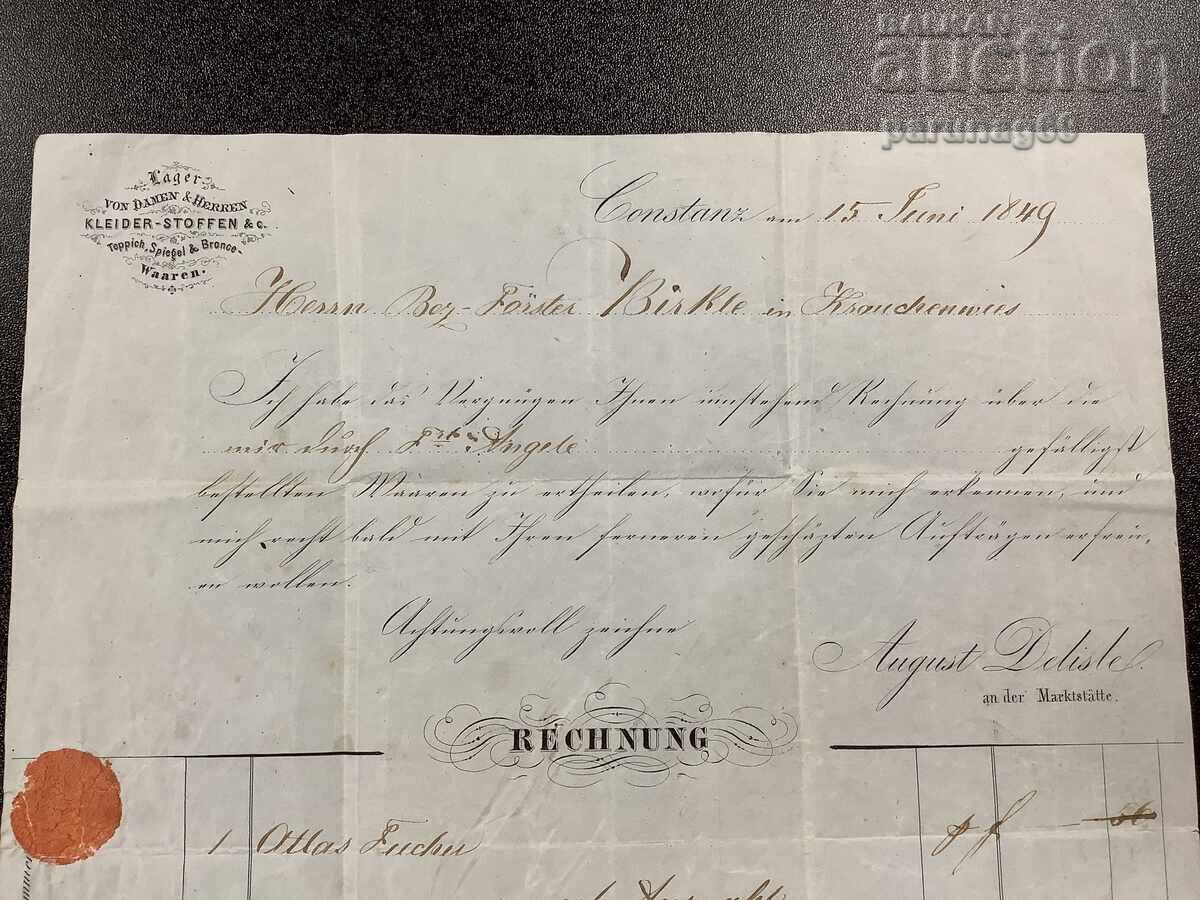 auction
parunag69
Lager
VON DAMEN & HERREN
KLEIDER-STOFFEN & C.
Teppich, Spiegel & Bronce-
Waaren.
Constanz am 15 Juni 1849
Herrn Bez-Förster Birkle in Krauchenwies
Ich habe das Vergnügen Ihnen umstehend Rechnung über die
mir durch Angele gefälligst
bestellten Waaren zu ertheilen, wofür Sie mich erkennen, und
mich recht bald mit Ihren ferneren geschäzten Aufträgen erfreu,
en wollen.
Achtungsvoll zeichne
August Delisle
an der Marktstätte.
RECHNUNG
1 Atlas